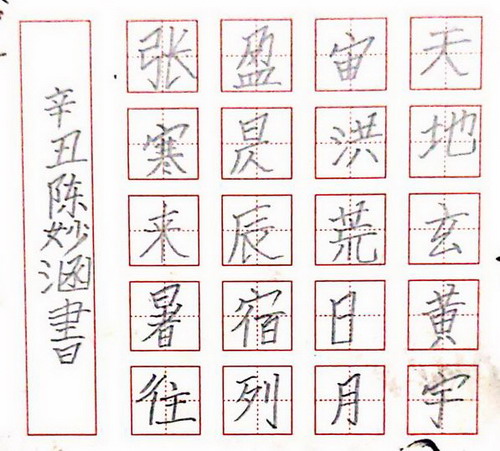 天地玄黄宇
宙洪荒日月
盈昃辰宿列
张寒来暑往
辛丑陈妙涵書